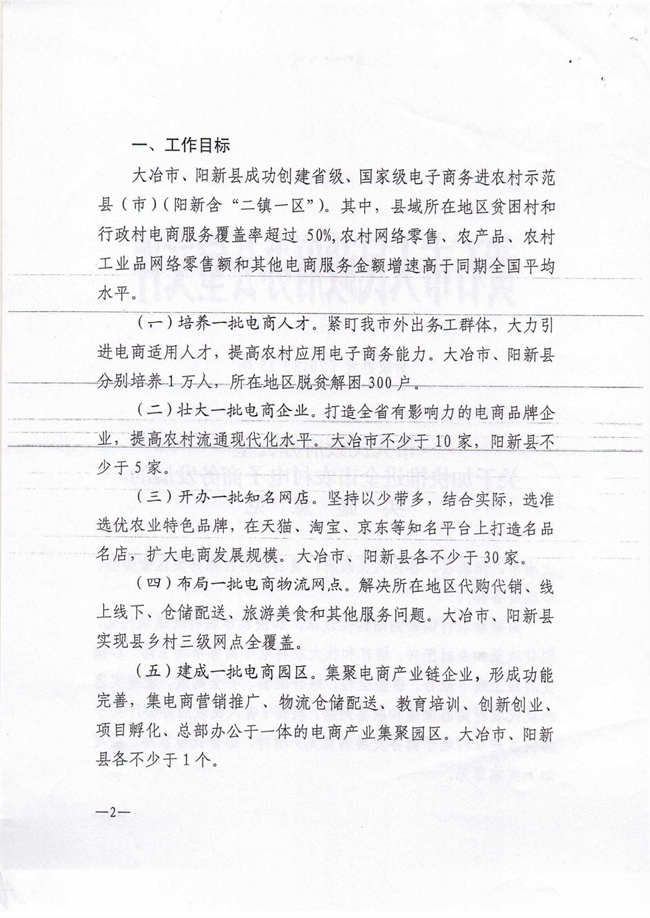 一、工作目标
大冶市、阳新县成功创建省级、国家级电子商务进农村示范
县（市）（阳新含“二镇一区”）。其中，县域所在地区贫困村和
行政村电商服务覆盖率超过 50%,农村网络零售、农产品、农村
工业品网络零售额和其他电商服务金额增速高于同期全国平均
水平。
（一）培养一批电商人才。紧盯我市外出务工群体，大力引
进电商适用人才，提高农村应用电子商务能力。大冶市、阳新县
分别培养 1 万人，所在地区脱贫解困 300 户。
（二）壮大一批电商企业。打造全省有影响力的电商品牌企
业，提高农村流通现代化水平。大冶市不少于 10 家，阳新县不
少于 5 家。
（三）开办一批知名网店。坚持以少带多，结合实际，选准
选优农业特色品牌，在天猫、淘宝、京东等知名平台上打造名品
名店，扩大电商发展规模。大冶市、阳新县各不少于 30 家。
（四）布局一批电商物流网点。解决所在地区代购代销、线
上线下、仓储配送、旅游美食和其他服务问题。大冶市、阳新县
实现县乡村三级网点全覆盖。
（五）建成一批电商园区。集聚电商产业链企业，形成功能
完善，集电商营销推广、物流仓储配送、教育培训、创新创业、
项目孵化、总部办公于一体的电商产业集聚园区。大冶市、阳新
县各不少于 1 个。
—2—